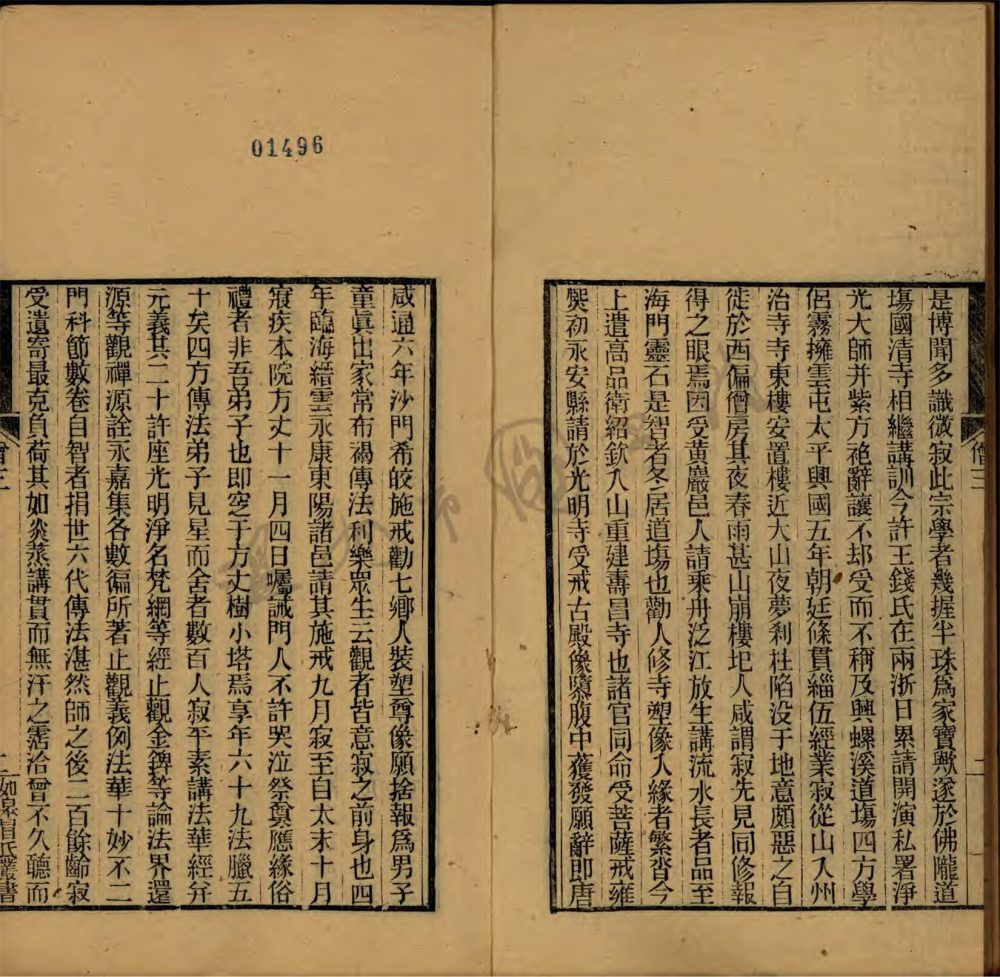 是博聞多識微寂此宗學者幾握半珠爲家寶歟遂於佛隴道
塲國清寺相繼講訓今許王錢氏在兩浙日累請開演私署淨
光大師并紫方袍辭讓不却受而不稱及興螺溪道塲四方學
侣霧擁雲屯太平興國五年朝廷條貫緇伍經業寂從山入州
治寺寺東樓安置樓近大山夜夢刹柱陷没于地意頗惡之自
徙於西偏僧房其夜春雨甚山崩樓圯人咸謂寂先見同修報
得之眼焉因受黃巖邑人請乘舟泛江放生講流水長者品至
海門靈石是智者冬居道塲也勸人修寺塑像入緣者繁沓今
上遣高品衛紹欽入山重建壽昌寺也諸官同命受菩薩戒雍
熈初永安縣請於光明寺受戒古殿像隳腹中獲發願辭即唐
僧三
二
咸通六年沙門希皎施戒勸七鄉人裝塑尊像願捨報爲男子
童眞出家常布褐傳法利樂眾生云觀者皆意寂之前身也四
年臨海縉雲永康東陽諸邑請其施戒九月寂至自太末十月
寢疾本院方丈十一月四日囑誡門人不許哭泣祭奠應緣俗
禮者非吾弟子也即窆于方丈樹小塔焉享年六十九法臘五
十矣四方傳法弟子見星而舍者數百人寂平素講法華經并
元義共二十許座光明淨名梵網等經止觀金錍等論法界還
源等觀禪源詮永嘉集各數徧所著止觀義例法華十妙不二
門科節數卷自智者捐世六代傳法湛然師之後二百餘齡寂
受遺寄最克負荷其如炎蒸講貫而無汗之霑洽曾不久聽而
僧三
二
如皋冒氏叢書
01496